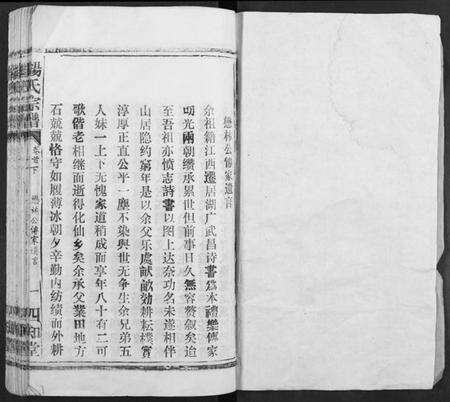 懋林公傳家遺言
余祖籍江西遷居湖广武昌诗書為本禮樂傳家
叨光兩朝纘承累世但前事日久無容贅叙矣迨
至吾祖亦愤志詩書以图上达奈功名未遂相伴
山居隐约窮年是以余父乐處献畝効耕耘樸實
淳厚正直公平一塵不染與世无争生余兄弟五
人妹一上下无愧家道稍成而享年八十有二可
歌偕老相继而逝得化仙乡矣余承父業田地方
石兢兢恪守如履薄冰朝夕辛勤内纺績而外耕
楊氏宗譜
卷首下
懋林公傳家遺言
一
四知堂